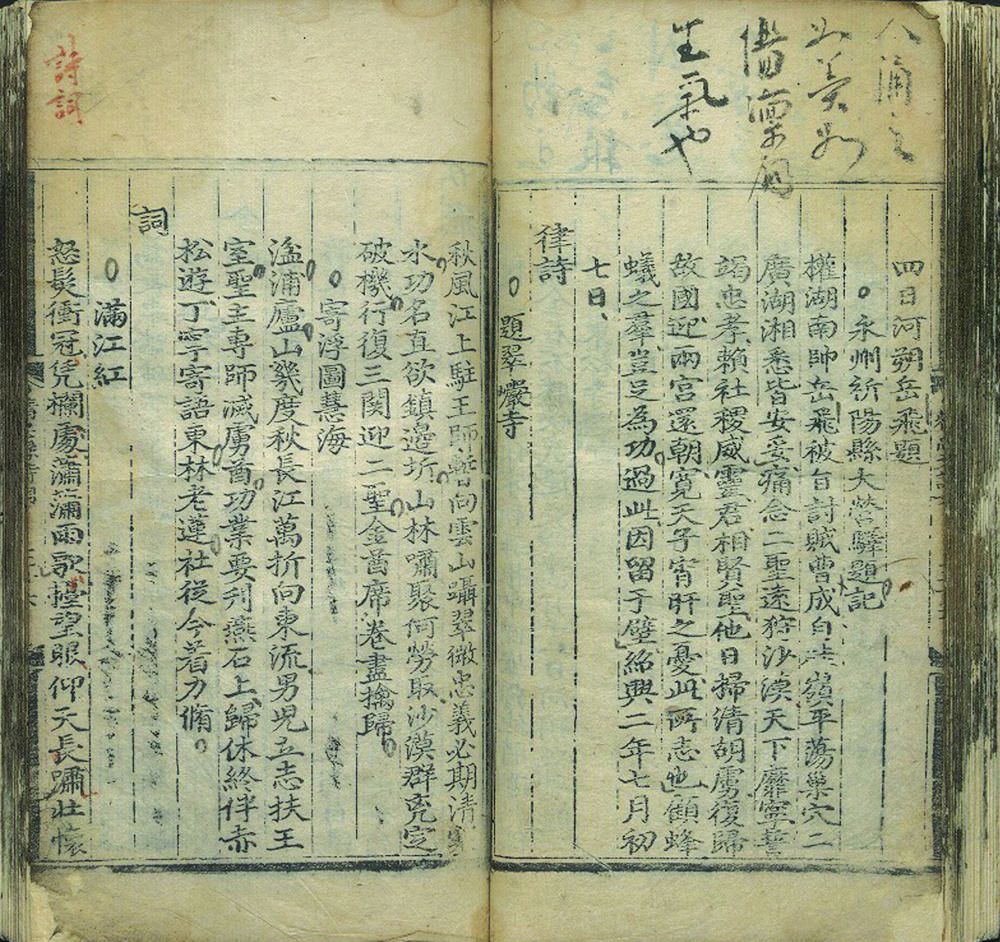 人誦之
生氣也
四日河朔岳飛題
○永州祈陽縣大營驛題記
權湖南帥岳飛被旨討賊曹成自桂嶺平蕩巢穴二
廣湖湘悉皆安妥痛念二聖遠狩沙漠天下靡寧誓
竭忠孝賴社稷威靈君相賢聖他日掃清胡虜復歸
故國迎兩宮還朝寬天子宵旰之憂此所志也顧蜂
蟻之羣豈足為功過此因留于壁紹興二年七月初
七日、
律詩
○題翠巖寺
詩詞
秋風江上駐王師暫向雲山躡翠微忠義必期清塞
水功名直欲鎮邊圻山林嘯聚何勞取沙漠群兇定
破機行復三関迎二聖金酋席卷盡擒歸
○寄浮圖慧海
湓浦廬山幾度秋長江萬折向東流男児立志扶王
室聖主專師滅虜酋功業要刊燕石上歸休終伴赤
松遊丁寧寄語東林老蓮社從今着力脩
詞
○滿江紅
怒髮衝冠凭欄處瀟瀟雨歇擡望眼仰天長嘯壯懷